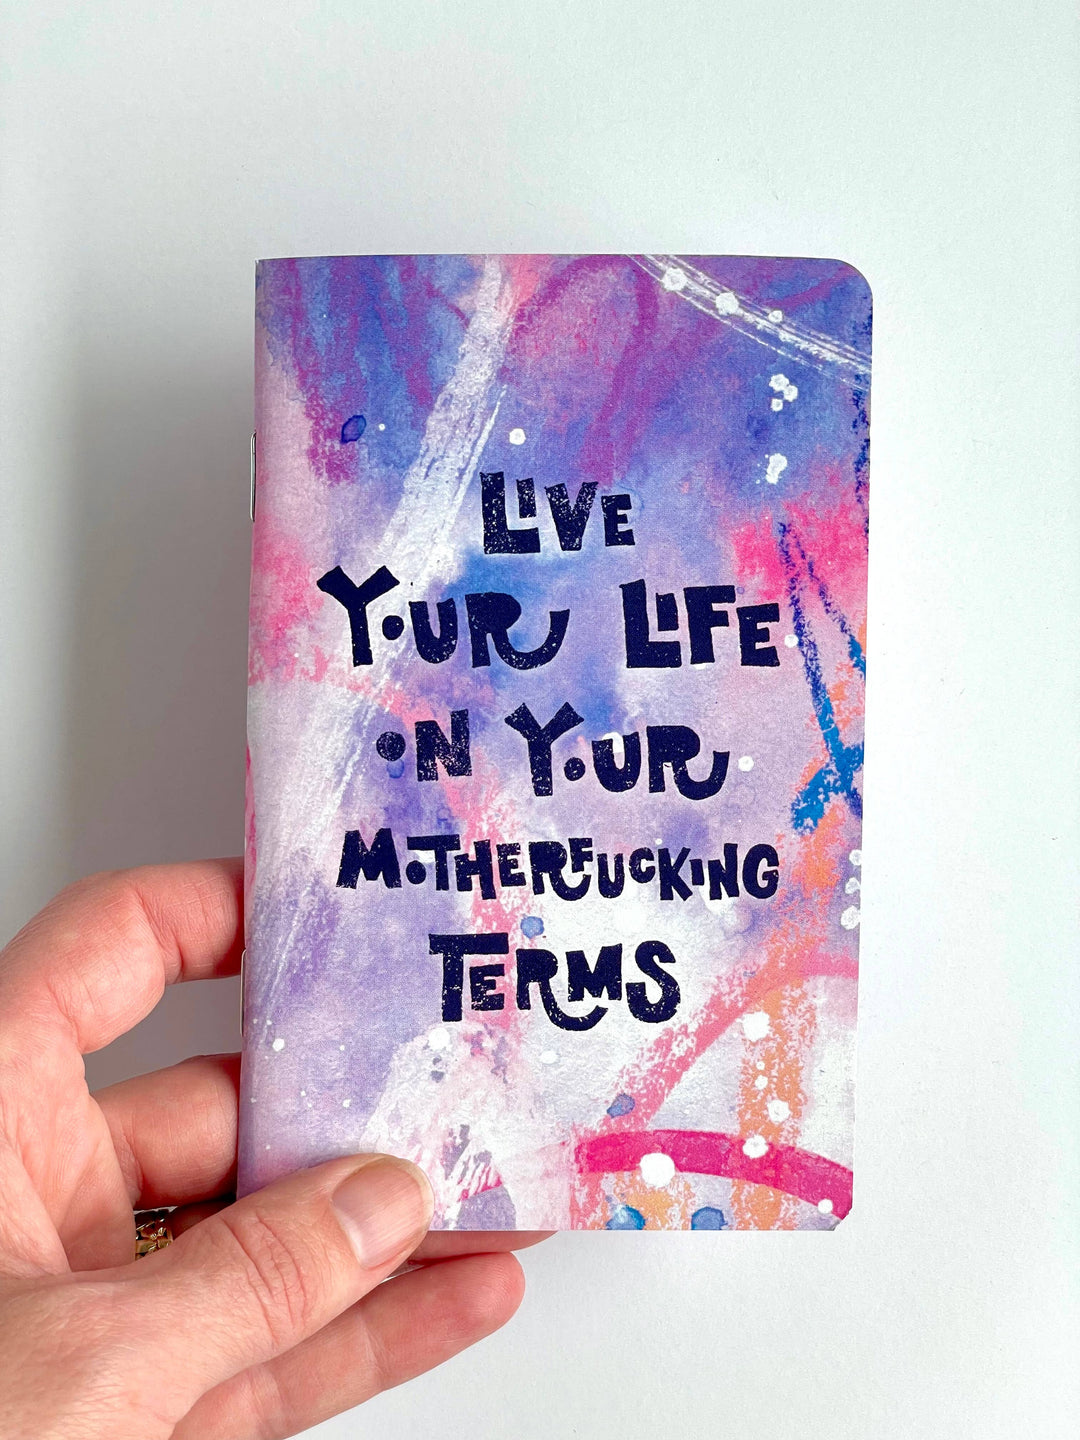 LIVE
YOUR LIFE
ON YOUR
MOTHERFUCKING
TERMS